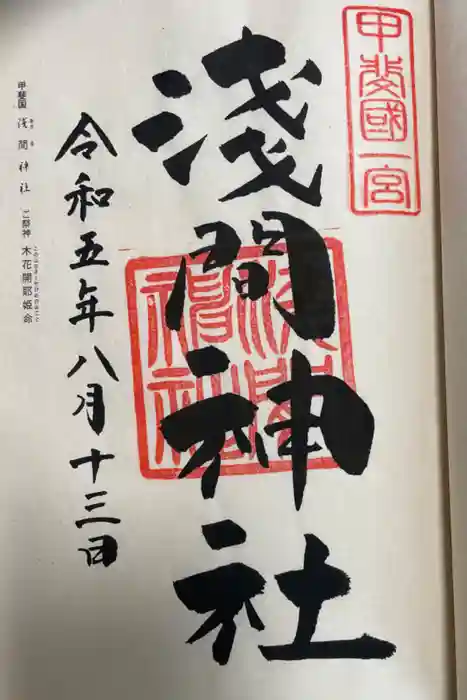 甲斐國一宮
淺間神社
淺間神社
令和五年八月十三日
甲斐国 浅間神社 ご祭神 木花開耶姫命